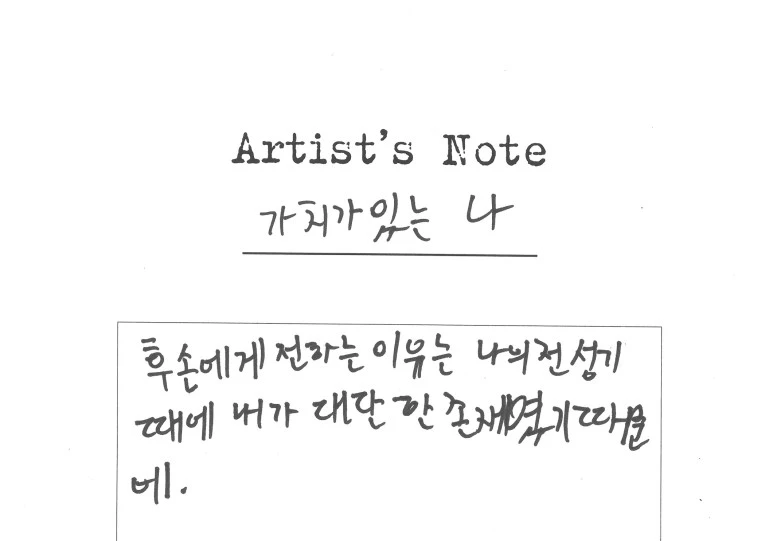 Artist's Note
가치가있는 나
후손에게 전하는 이유는 나의 전성기
때에 내가 대단한 존재였기따문
에.